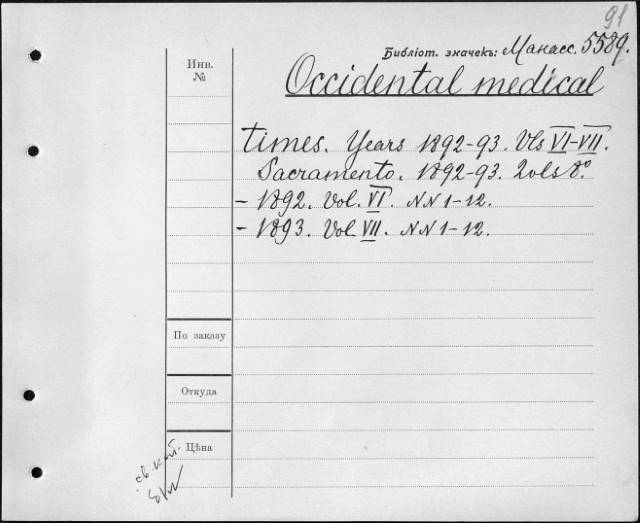 91
Библіот. значекъ: Манасс. 5589.
Инв.
№
Occidental medical
times. Years 1892-93. Vls VI-VII.
Sacramento. 1892-93. 2vols 8°
- 1892. Vol. VI. NN 1-12.
- 1893. Vol. VII. NN 1-12.
По заказу
Откуда
Цѣна